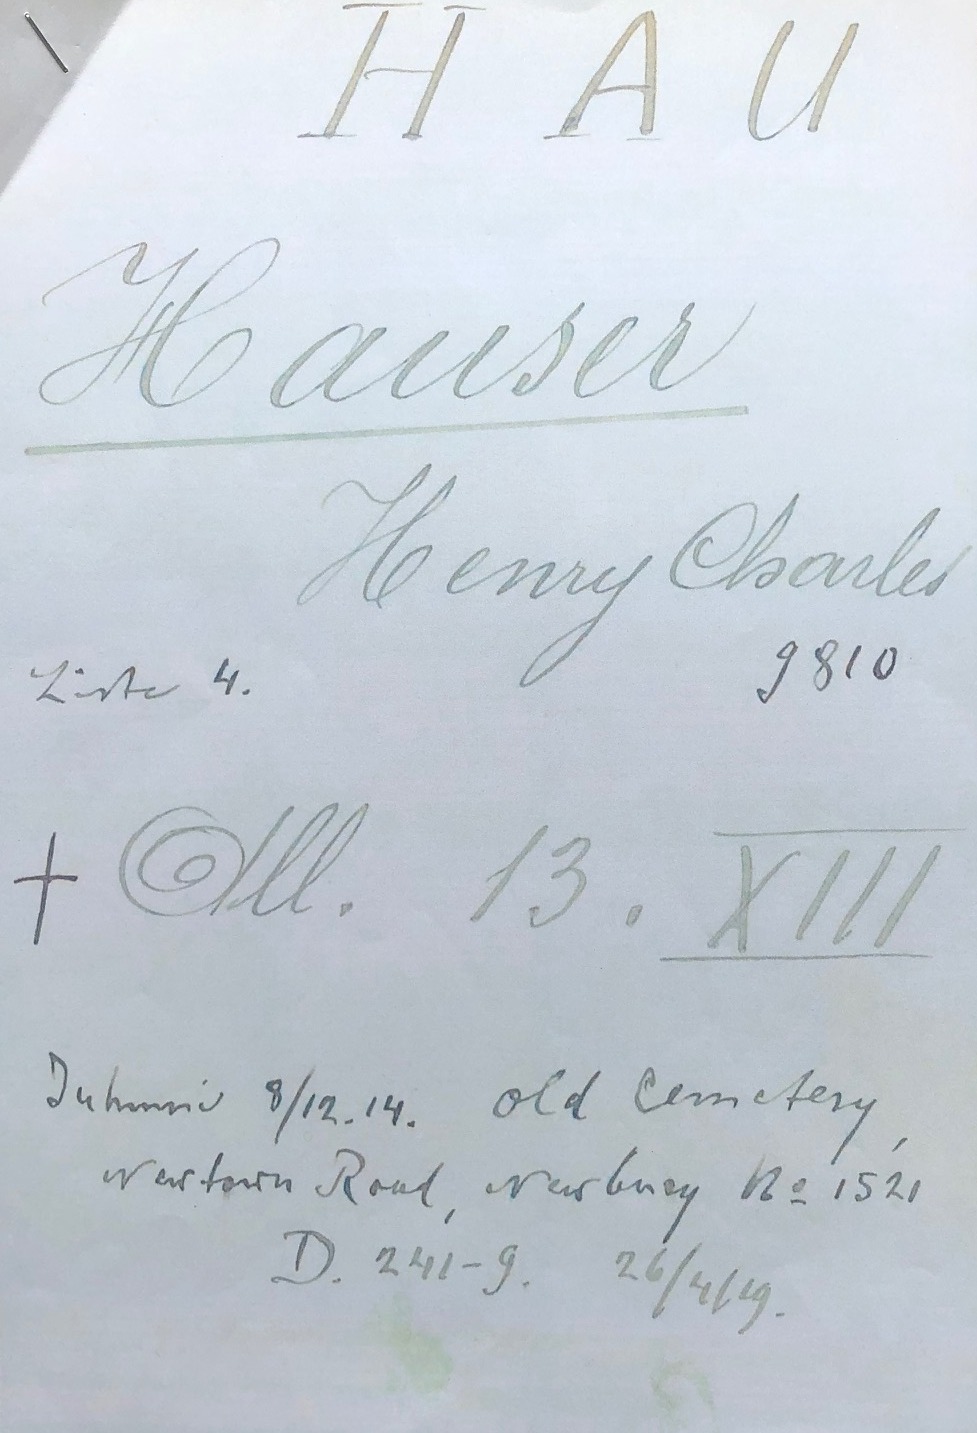 HAU
Hauser
Henry Charles
Liste 4. 9810
† All. 13. XIII
Inhumé 8/12.14. old Cemetery,
Newtown Road, Newbury No 1521
D. 241-9. 26/4/19.